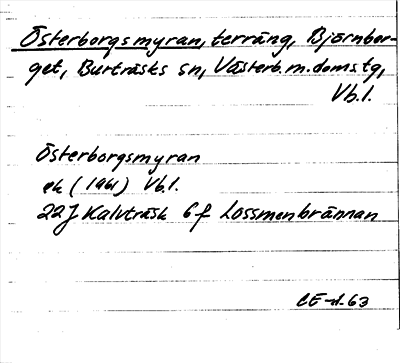 Österborgsmyran, terräng, Björnbor-
get, Burträsks sn, Västerb. m. doms.tg,
Vb.l.
Österborgsmyran
ek (1961) Vb.l.
22J Kalvträsk 6f Lossmenbrännan
CE-d.63